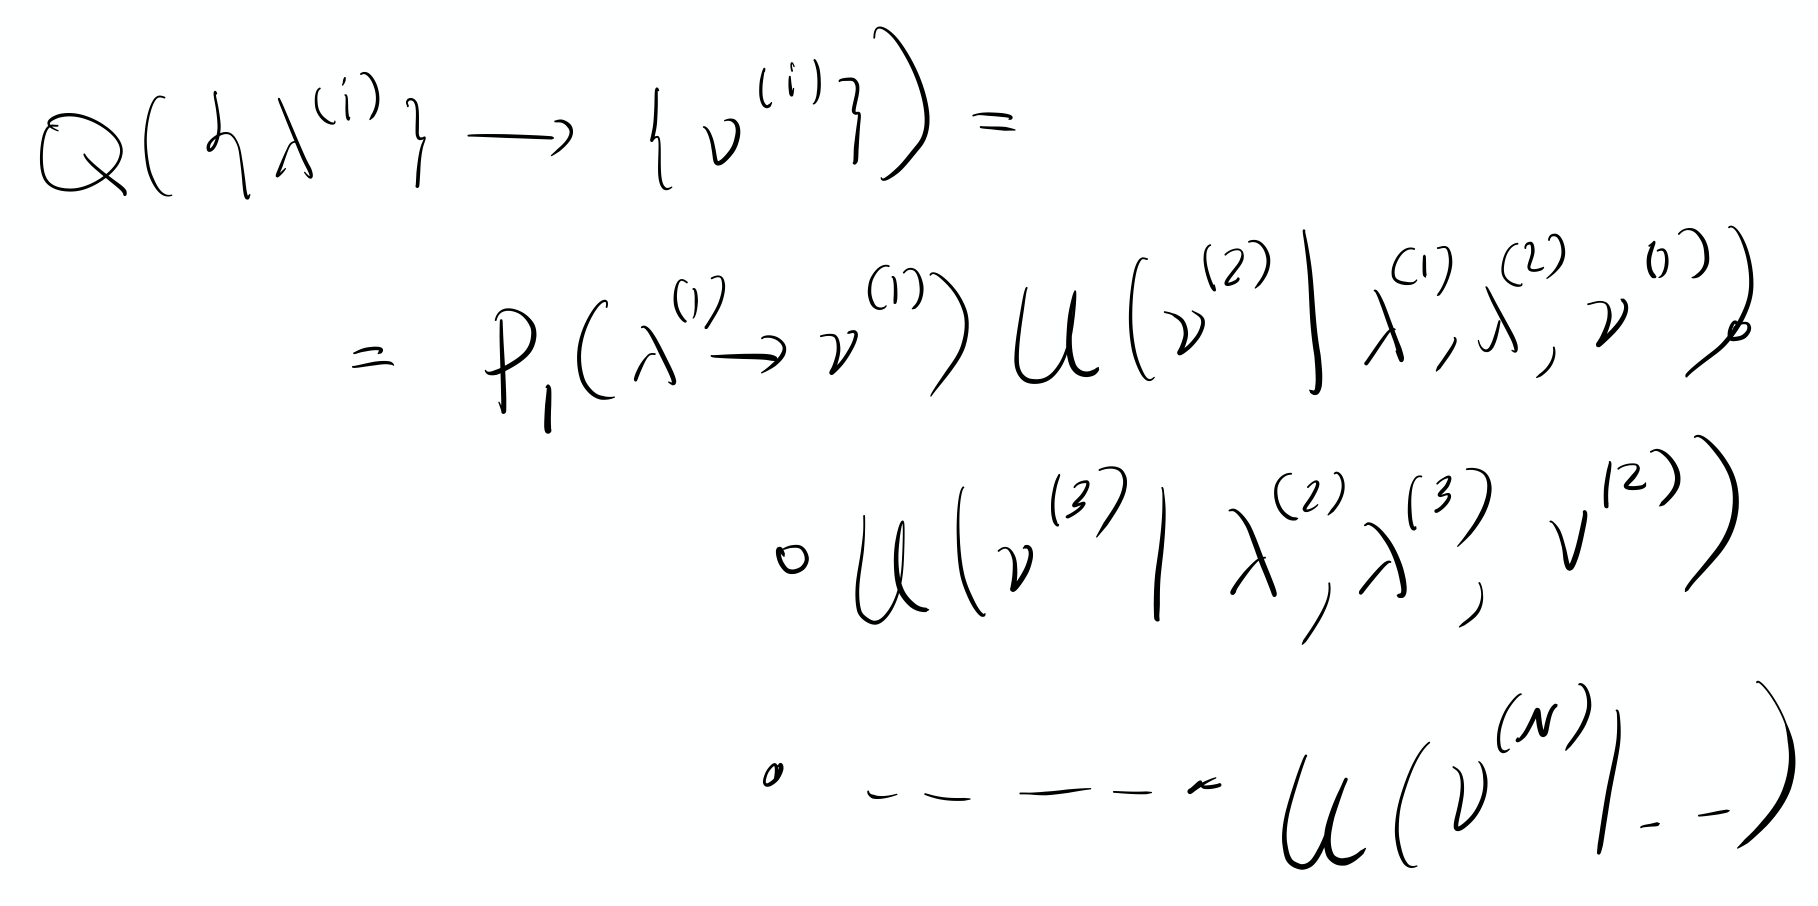 Q({λ^(i)} → {ν^(i)}) =
= P₁(λ^(1) → ν^(1)) U(ν^(2) | λ^(1), λ^(2), ν^(1)) ∘
∘ U(ν^(3) | λ^(2), λ^(3), ν^(2))
∘ - - - - - U(ν^(N) | - -)